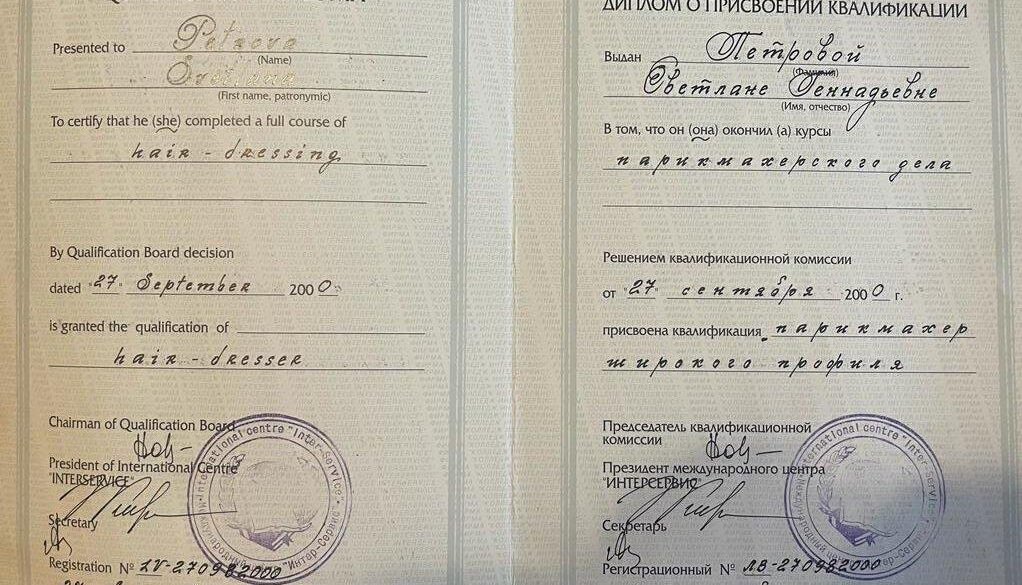 Presented to Petrova
(Name)
Svetlana
(First name, patronymic)
To certify that he (she) completed a full course of
hair-dressing
By Qualification Board decision
dated "27" September 2000.
is granted the qualification of
hair-dresser
Chairman of Qualification Board
President of International Centre
"INTERSERVICE"
Secretary
Registration №
International centre "Inter-Service"
ДИПЛОМ О ПРИСВОЕНИИ КВАЛИФИКАЦИИ
Выдан Петровой
(Фамилия)
Светлане Геннадьевне
(Имя, отчество)
В том, что он (она) окончил (а) курсы
парикмахерского дела
Решением квалификационной комиссии
от "27" сентября 2000 г.
присвоена квалификация парикмахер
широкого профиля
Председатель квалификационной
комиссии
Президент международного центра
"ИНТЕРСЕРВИС"
Секретарь
Регистрационный № ЛВ-270982000
International centre "Inter-Service"